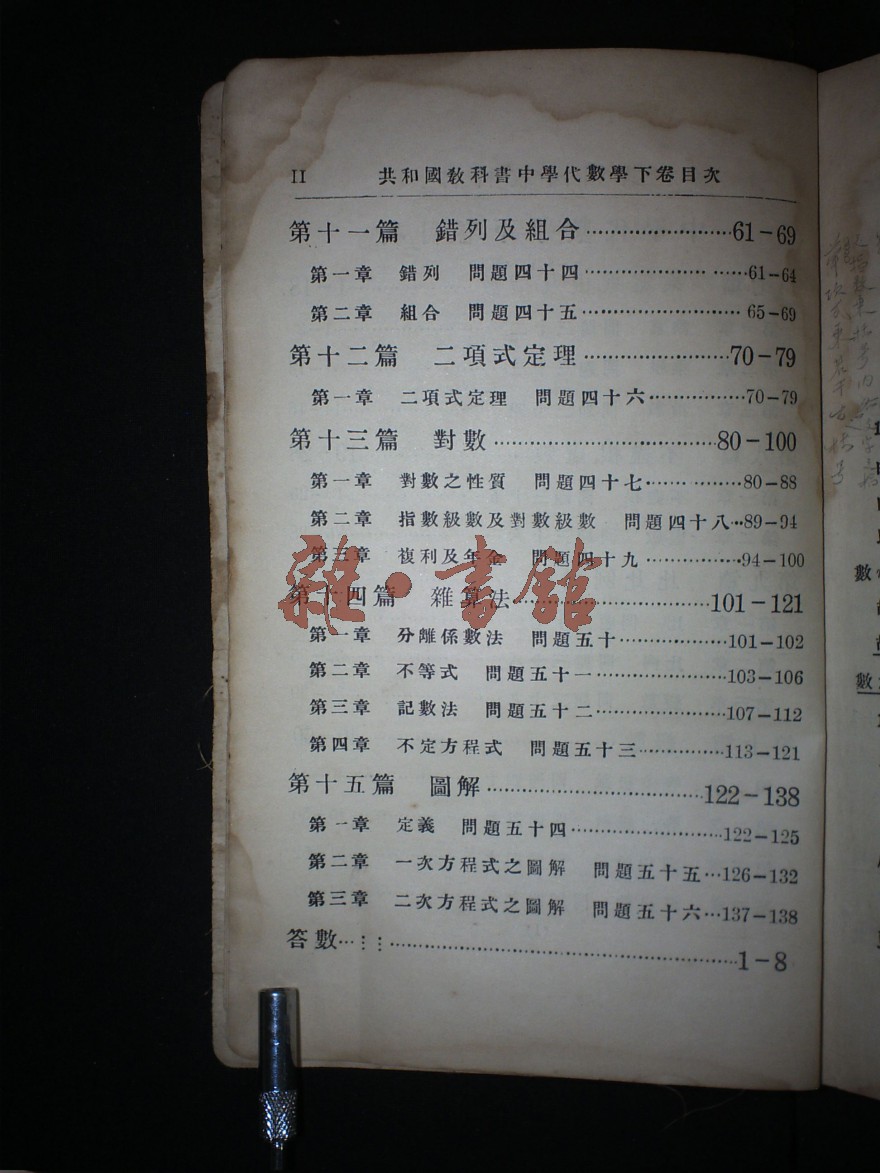 II 共和國敎科書中學代數學下卷目次
第十一篇 錯列及組合……………………61-69
第一章 錯列 問題四十四…………………… ……61-64
第二章 組合 問題四十五…………………… 65-69
第十二篇 二項式定理……………………70-79
第一章 二項式定理 問題四十六……………70-79
第十三篇 對數……………………80-100
第一章 對數之性質 問題四十七…… ………80-88
第二章 指數級數及對數級數 問題四十八…89-94
第三章 複利及年金 問題四十九……………94-100
第十四篇 雜算法……………………101-121
第一章 分離係數法 問題五十……………101-102
第二章 不等式 問題五十一…………………103-106
第三章 記數法 問題五十二…………………107-112
第四章 不定方程式 問題五十三……………113-121
第十五篇 圖解……………………122-138
第一章 定義 問題五十四……………………122-125
第二章 一次方程式之圖解 問題五十五…126-132
第三章 二次方程式之圖解 問題五十六…137-138
答數…⋮⋮……………………………………1-8
雜·書館
數
數